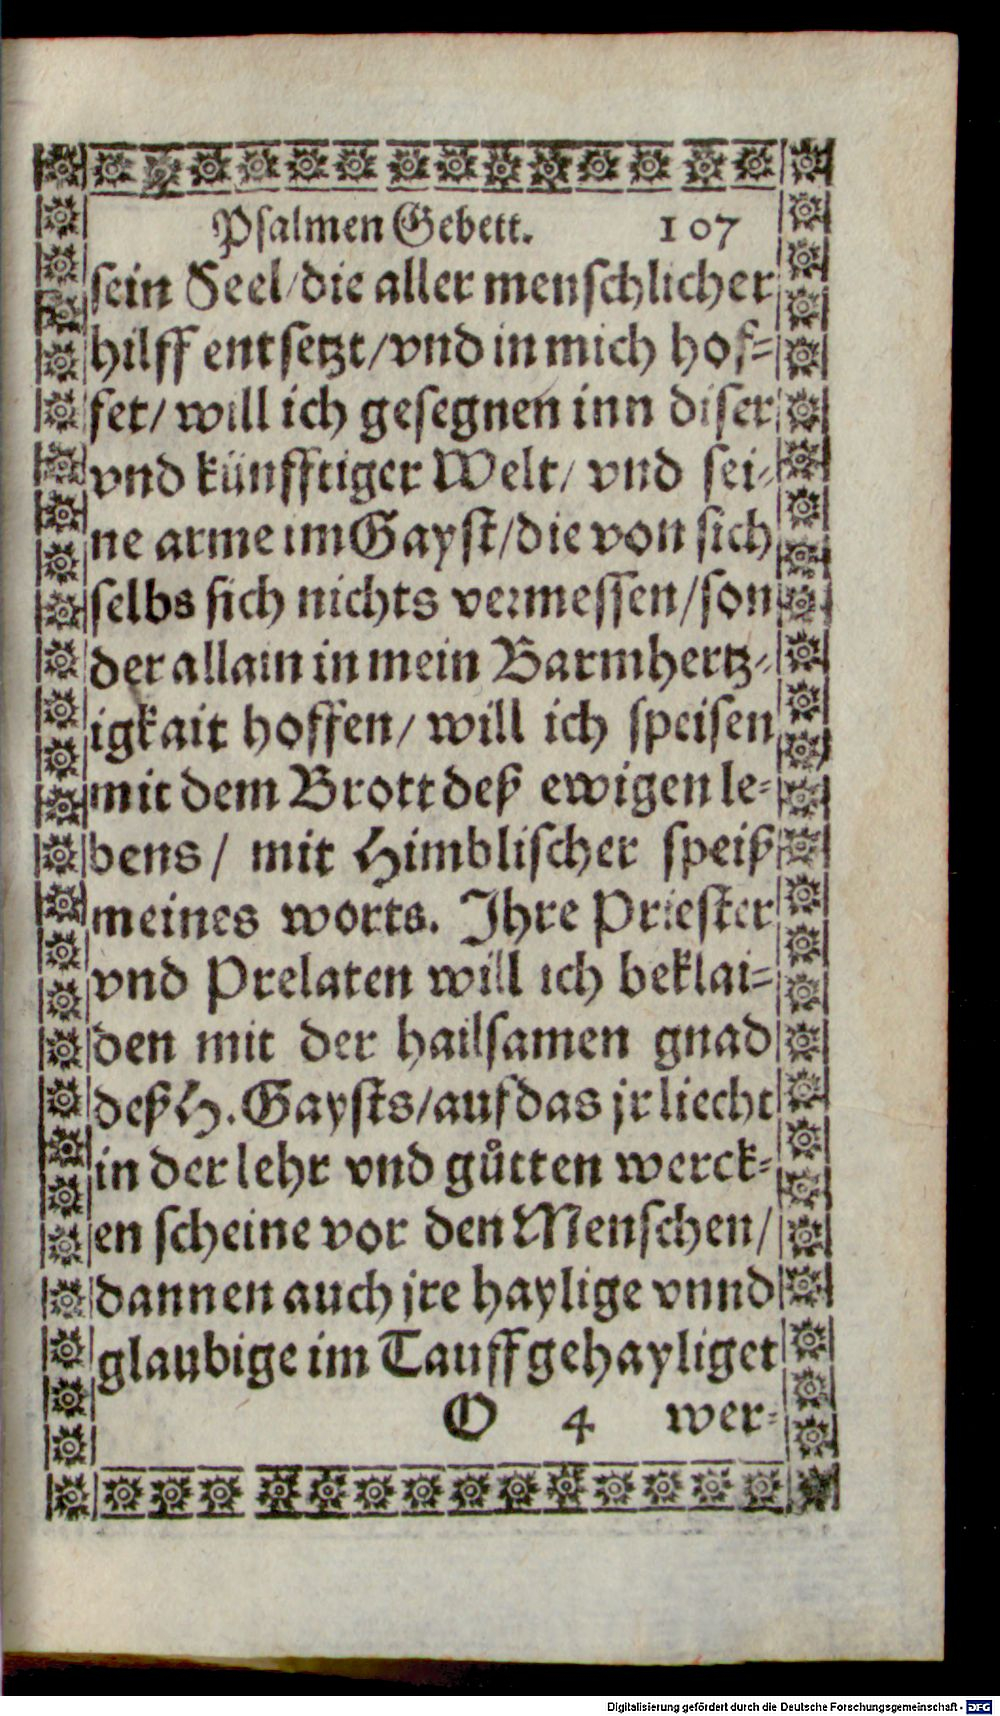 Psalmen Gebett. 107
sein Seel/die aller menschlicher
hilff entsetzt/vnd in mich hof-
fet/ will ich gesegnen inn diser
vnd künfftiger Welt/ vnd sei-
ne arme im Gayst/die von sich
selbs sich nichts vermessen/son
der allain in mein Barmhertz-
igkait hoffen/ will ich speisen
mit dem Brott deß ewigen le-
bens/ mit Himblischer speiß
meines worts. Jhre Priester
vnd Prelaten will ich beklai-
den mit der hailsamen gnad
deß H. Gaysts/auf das jr liecht
in der lehr vnd gůtten werck-
en scheine vor den Menschen/
dannen auch jre haylige vnnd
glaubige im Tauff gehayliget
O 4 wer-
Digitalisierung gefördert durch die Deutsche Forschungsgemeinschaft - DFG